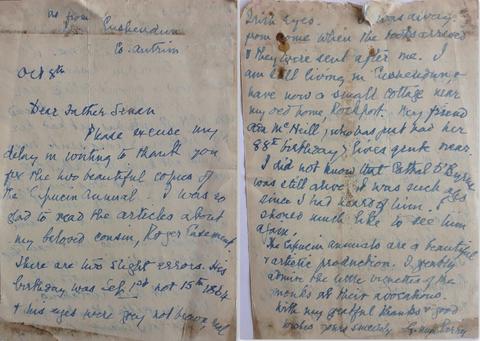 as from
Cushendun
Co. Antrim
Oct 8th
Dear Father Senan
Please excuse my
delay in writing to thank you
for the two beautiful copies of
the Capucin Annual. I was so
glad to read the articles about
my beloved cousin, Roger Casement.
There are two slight errors. His
birthday was Sep 1st not 15th 1864
& his eyes were grey not brown, real
Irish Eyes. I was away
from home when the books arrived
& they were sent after me. I
am still living in Cushendun, &
have now a small cottage near
my old home, Rockport. My friend
Ada McNeill, who has just had her
88th birthday, lives quite near
I did not know that Cathal O'Byrne
was still alive it was such ages
since I had heard of him. I
should much like to see him
again.
The Capucin annuals are a beautiful
& artistic production. I greatly
admire the little vignettes of the
monks at their avocations.
With my grateful thanks & good
wishes yours sincerely Parry